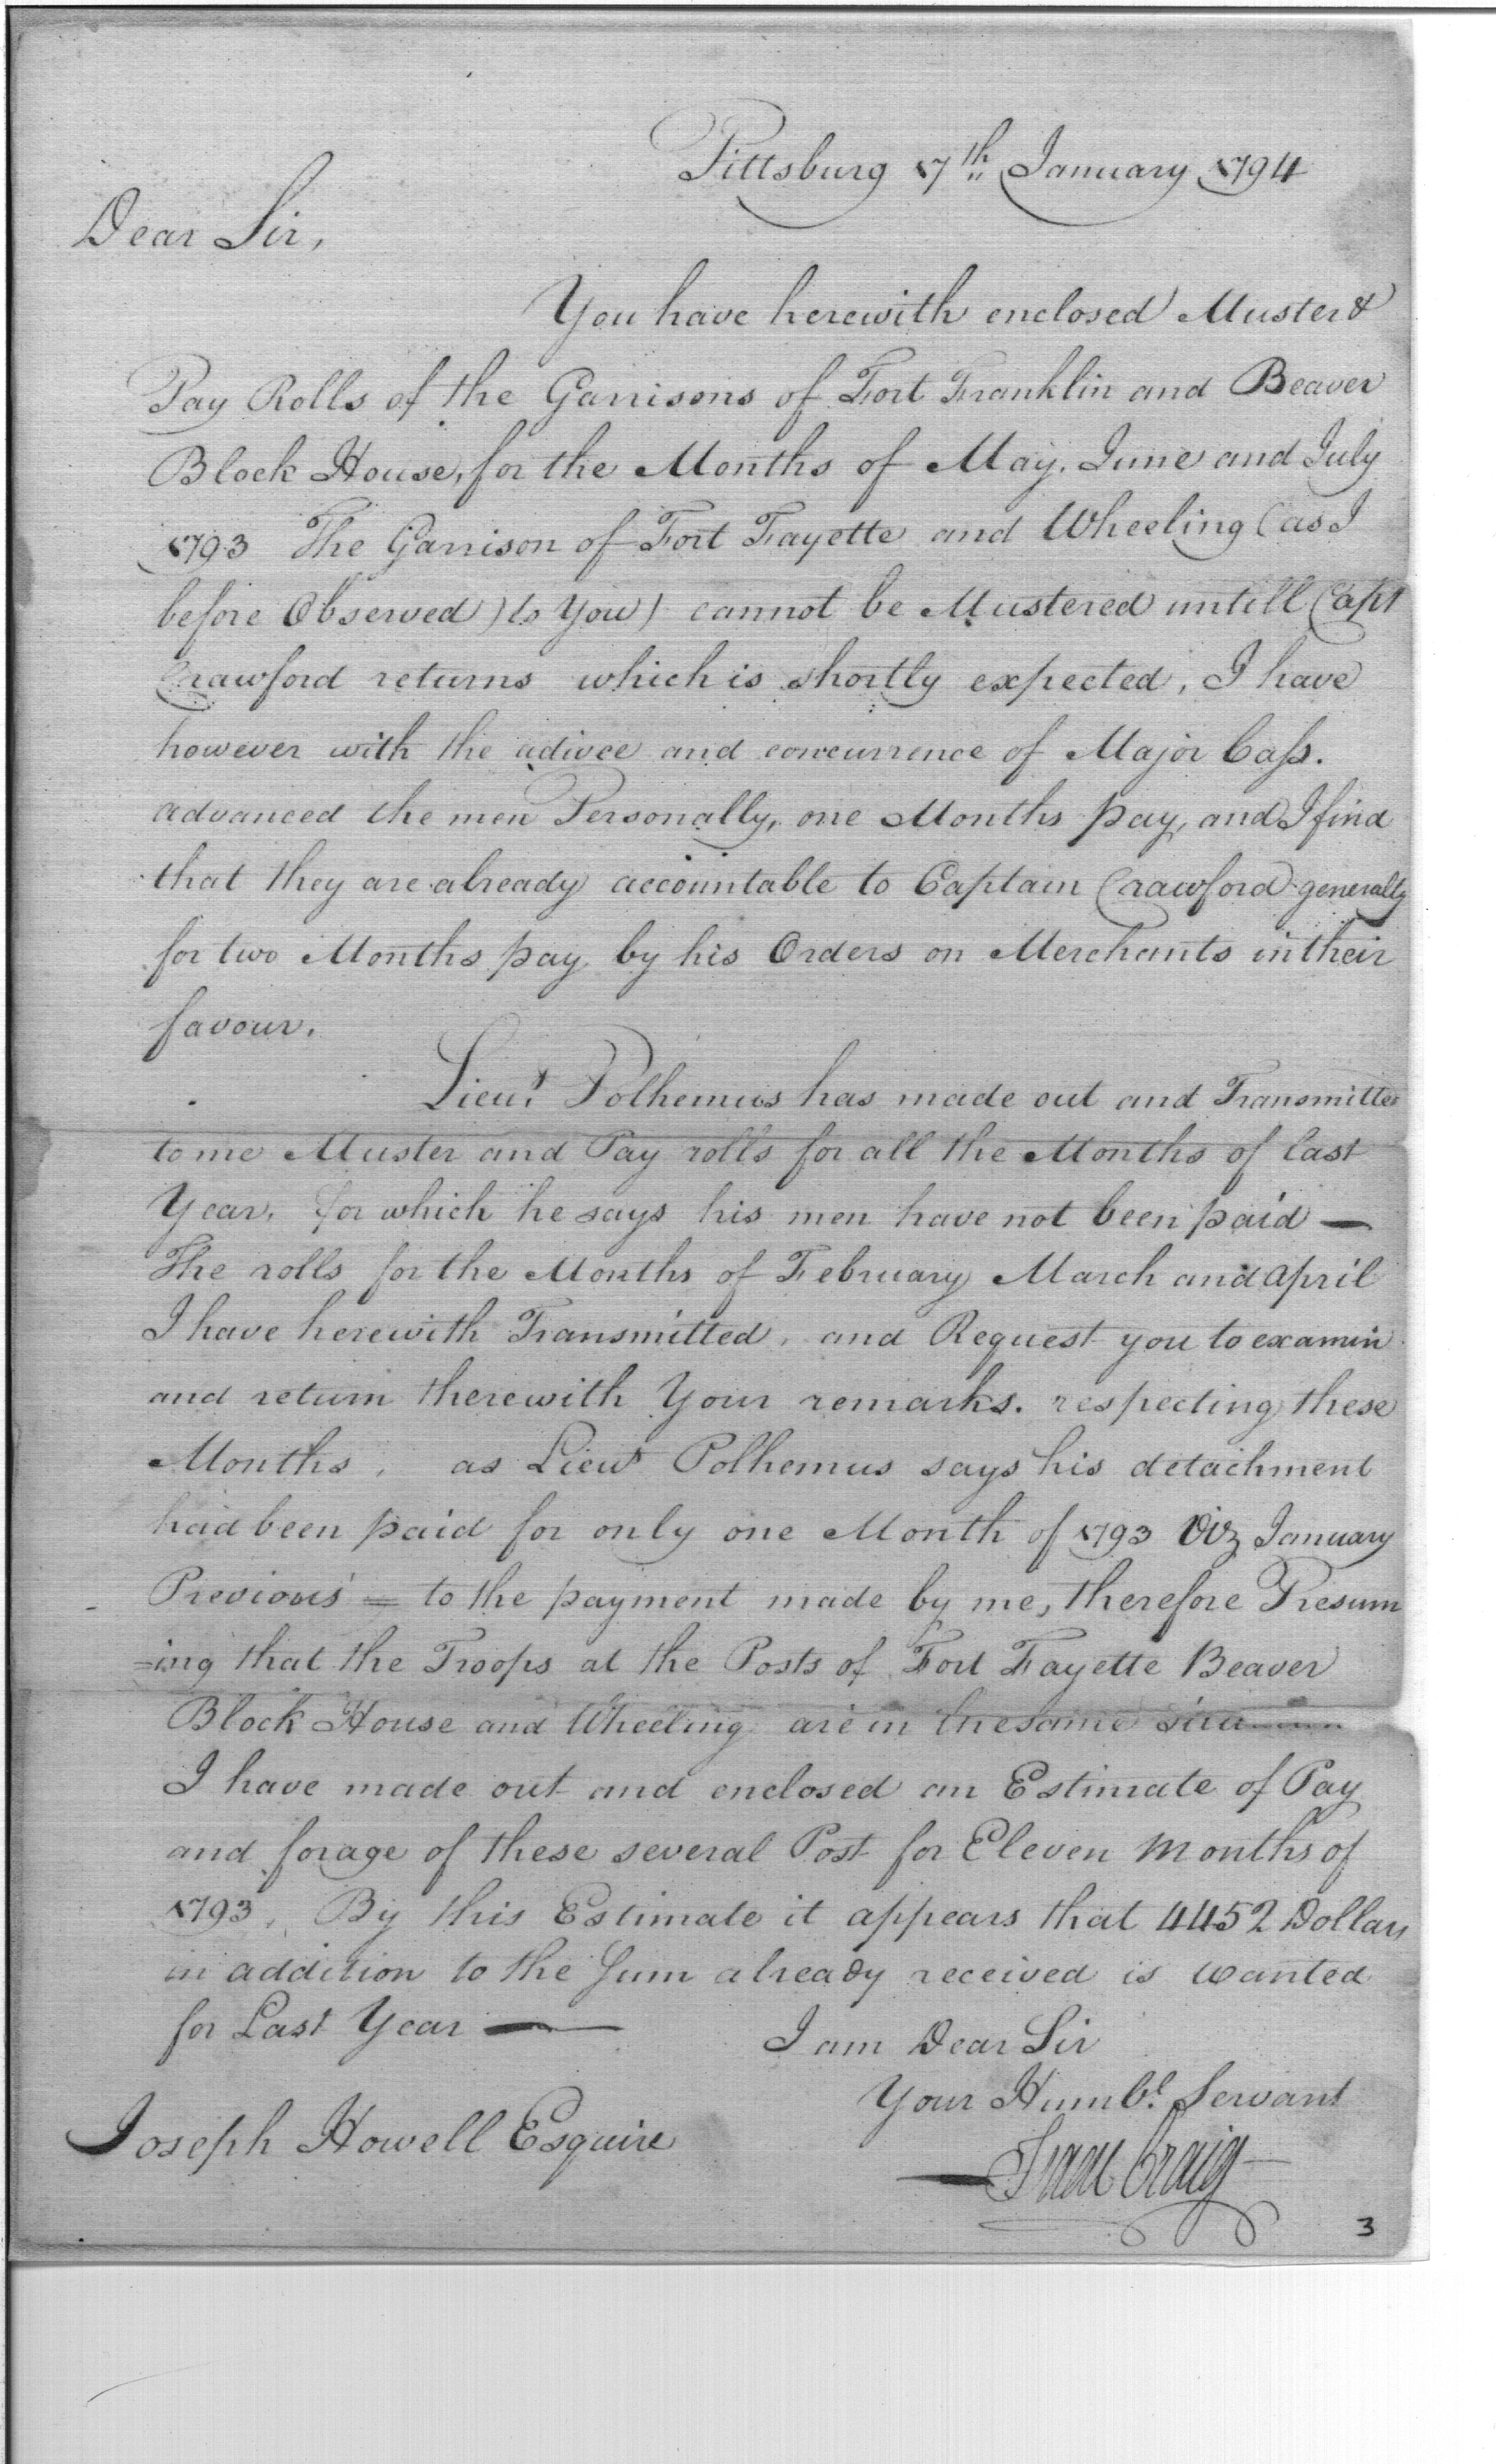 Pittsburg 17th January 1794
Dear Sir,
You have herewith enclosed Muster &
Pay Rolls of the Garrisons of Fort Franklin and Beaver
Block House, for the Months of May, June and July
1793 The Garrison of Fort Fayette and Wheeling (as I
before Observed) to You) cannot be Mustered untill Capt
Crawford returns which is shortly expected, I have
however with the adivce and concurrence of Major Cass.
advanced the men Personally, one Months pay, and I find
that they are already accountable to Captain Crawford generally
for two Months pay by his Orders on Merchants in their
favour.
Lieut Polhemus has made out and Transmitted
to me Muster and Pay rolls for all the Months of last
Year, for which he says his men have not been paid —
The rolls for the Months of February March and April
I have herewith Transmitted, and Request you to examin
and return therewith Your remarks. respecting these
Months, as Lieut Polhemus says his detachment
had been paid for only one Month of 1793 Viz January
Previous = to the payment made by me, therefore Presum
=ing that the Troops at the Posts of Fort Fayette Beaver
Block House and Wheeling are in the same
I have made out and enclosed an Estimate of Pay
and forage of these several Post for Eleven Months of
1793, By this Estimate it appears that 4452 Dollars
in addition to the Sum already received is wanted
for Last Year —
I am Dear Sir
Your Humbl. Servant
Isaac Craig
Joseph Howell Esquire
3